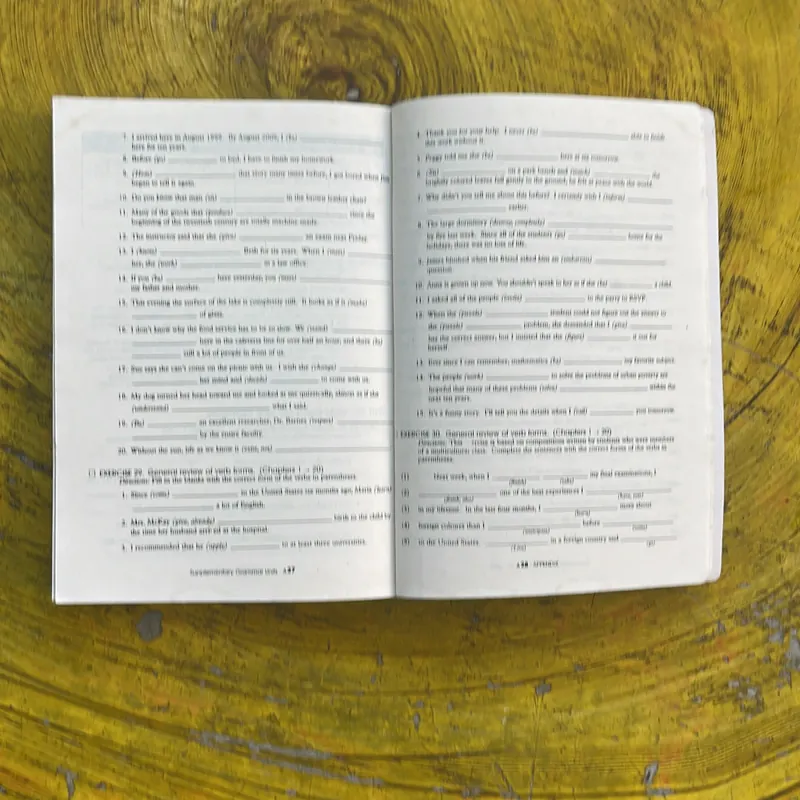 7. I arrived here in August          By August          , I (be)
here for ten years.
8. Before (go)          to bed, I have to finish my homework.
9. (Hear)          that story many times before, I got bored when
began to tell it again.
10. Do you know that man (sit)          in the brown leather
11. Many of the goods that (produce)          since the
beginning of the twentieth century are totally machine made.
12. The instructor said that she (give)          an exam next Friday.
13. I (know)          for six years. When I (meet)
her, she (work)          in a law office.
14. If you (be)          here yesterday, you (meet)
my father and mother.
15. This evening the surface of the lake is completely still. It looks as if it (make)
of glass.
16. I don't know why the food service has to be so slow. We (stand)
here in the cafeteria line for over half an hour, and there (be)
still a lot of people in front of us.
17. Sue says she can't come on the picnic with us. I wish she (change)
her mind and (decide)          to come with us.
18. My dog turned her head toward me and looked at me quizzically, almost as if she
(understand)          what I said.
19. (Be)          an excellent researcher, Dr. Barnes (respect)
by the entire faculty.
20. Without the sun, life as we know it (exist, not)
□ EXERCISE 29. General review of verb forms. (Chapters 1 → 20)
Directions: Fill in the blanks with the correct form of the verbs in parentheses.
1. Since (come)          to the United States six months ago, Maria (learn)
a lot of English.
2. Mrs. McKay (give, already)          birth to the child by
the time her husband arrived at the hospital.
3. I recommended that he (apply)          to at least three universities.
Supplementary Grammar Units A27
4. Thank you for your help. I never (be)          able to finish
this work without it.
5. Peggy told me she (be)          here at six tomorrow.
6. (Sit)          on a park bench and (watch)          the
brightly colored leaves fall gently to the ground, he felt at peace with the world.
7. Why didn't you tell me about this before? I certainly wish I (inform)
earlier.
8. The large dormitory (destroy, completely)
by fire last week. Since all of the students (go)          home for the
holidays, there was no loss of life.
9. James blushed when his friend asked him an (embarrass)
question.
10. Anna is grown up now. You shouldn't speak to her as if she (be)          a child.
11. I asked all of the people (invite)          to the party to RSVP.
12. When the (puzzle)          student could not figure out the answer to
the (puzzle)          problem, she demanded that I (give)
her the correct answer, but I insisted that she (figure)          it out for
herself.
13. Ever since I can remember, mathematics (be)          my favorite subject.
14. The people (work)          to solve the problems of urban poverty are
hopeful that many of these problems (solve)          within the
next ten years.
15. It's a funny story. I'll tell you the details when I (call)          you tomorrow.
□ EXERCISE 30. General review of verb forms. (Chapters 1 → 20)
Directions: This          is based on compositions written by students who were members
of a multicultural class. Complete the sentences with the correct forms of the verbs in
parentheses.
(1) Next week, when I          my final examinations, I
(finish) (take)
(2)          one of the best experiences I
(finish, also) (have, ever)
(3) in my lifetime. In the last four months, I          more about
(learn)
(4) foreign cultures than I          before
(anticipate) (come)
(5) to the United States.          in a foreign country and
(Live) (go)
A28 APPENDIX